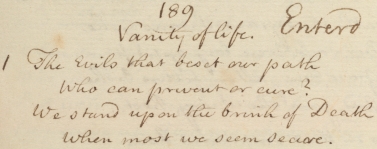 189
Vanity of life. Enterd
1 The Evils that beset our path
Who can prevent or cure?
We stand upon the brink of Death
When most we seem secure.